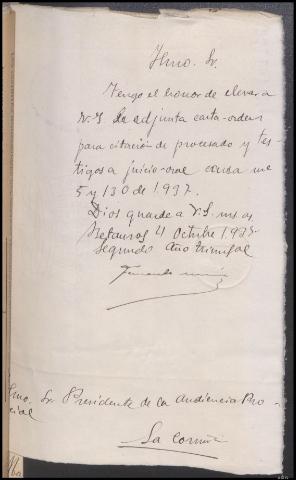 Ilmo. Sr.
Tengo el honor de elevar a
V.S. la adjunta carta-orden
para citación de procesado y tes-
tigos a juicio-oral causa
5 y 130 de 1.937.
Dios guarde a V.S. ms as
Betanzos 4 Octubre 1.93
Segundo Año triunfal
Fernando
Ilmo. Sr Presidente de la Audiencia Pro-
cial
La Coruña